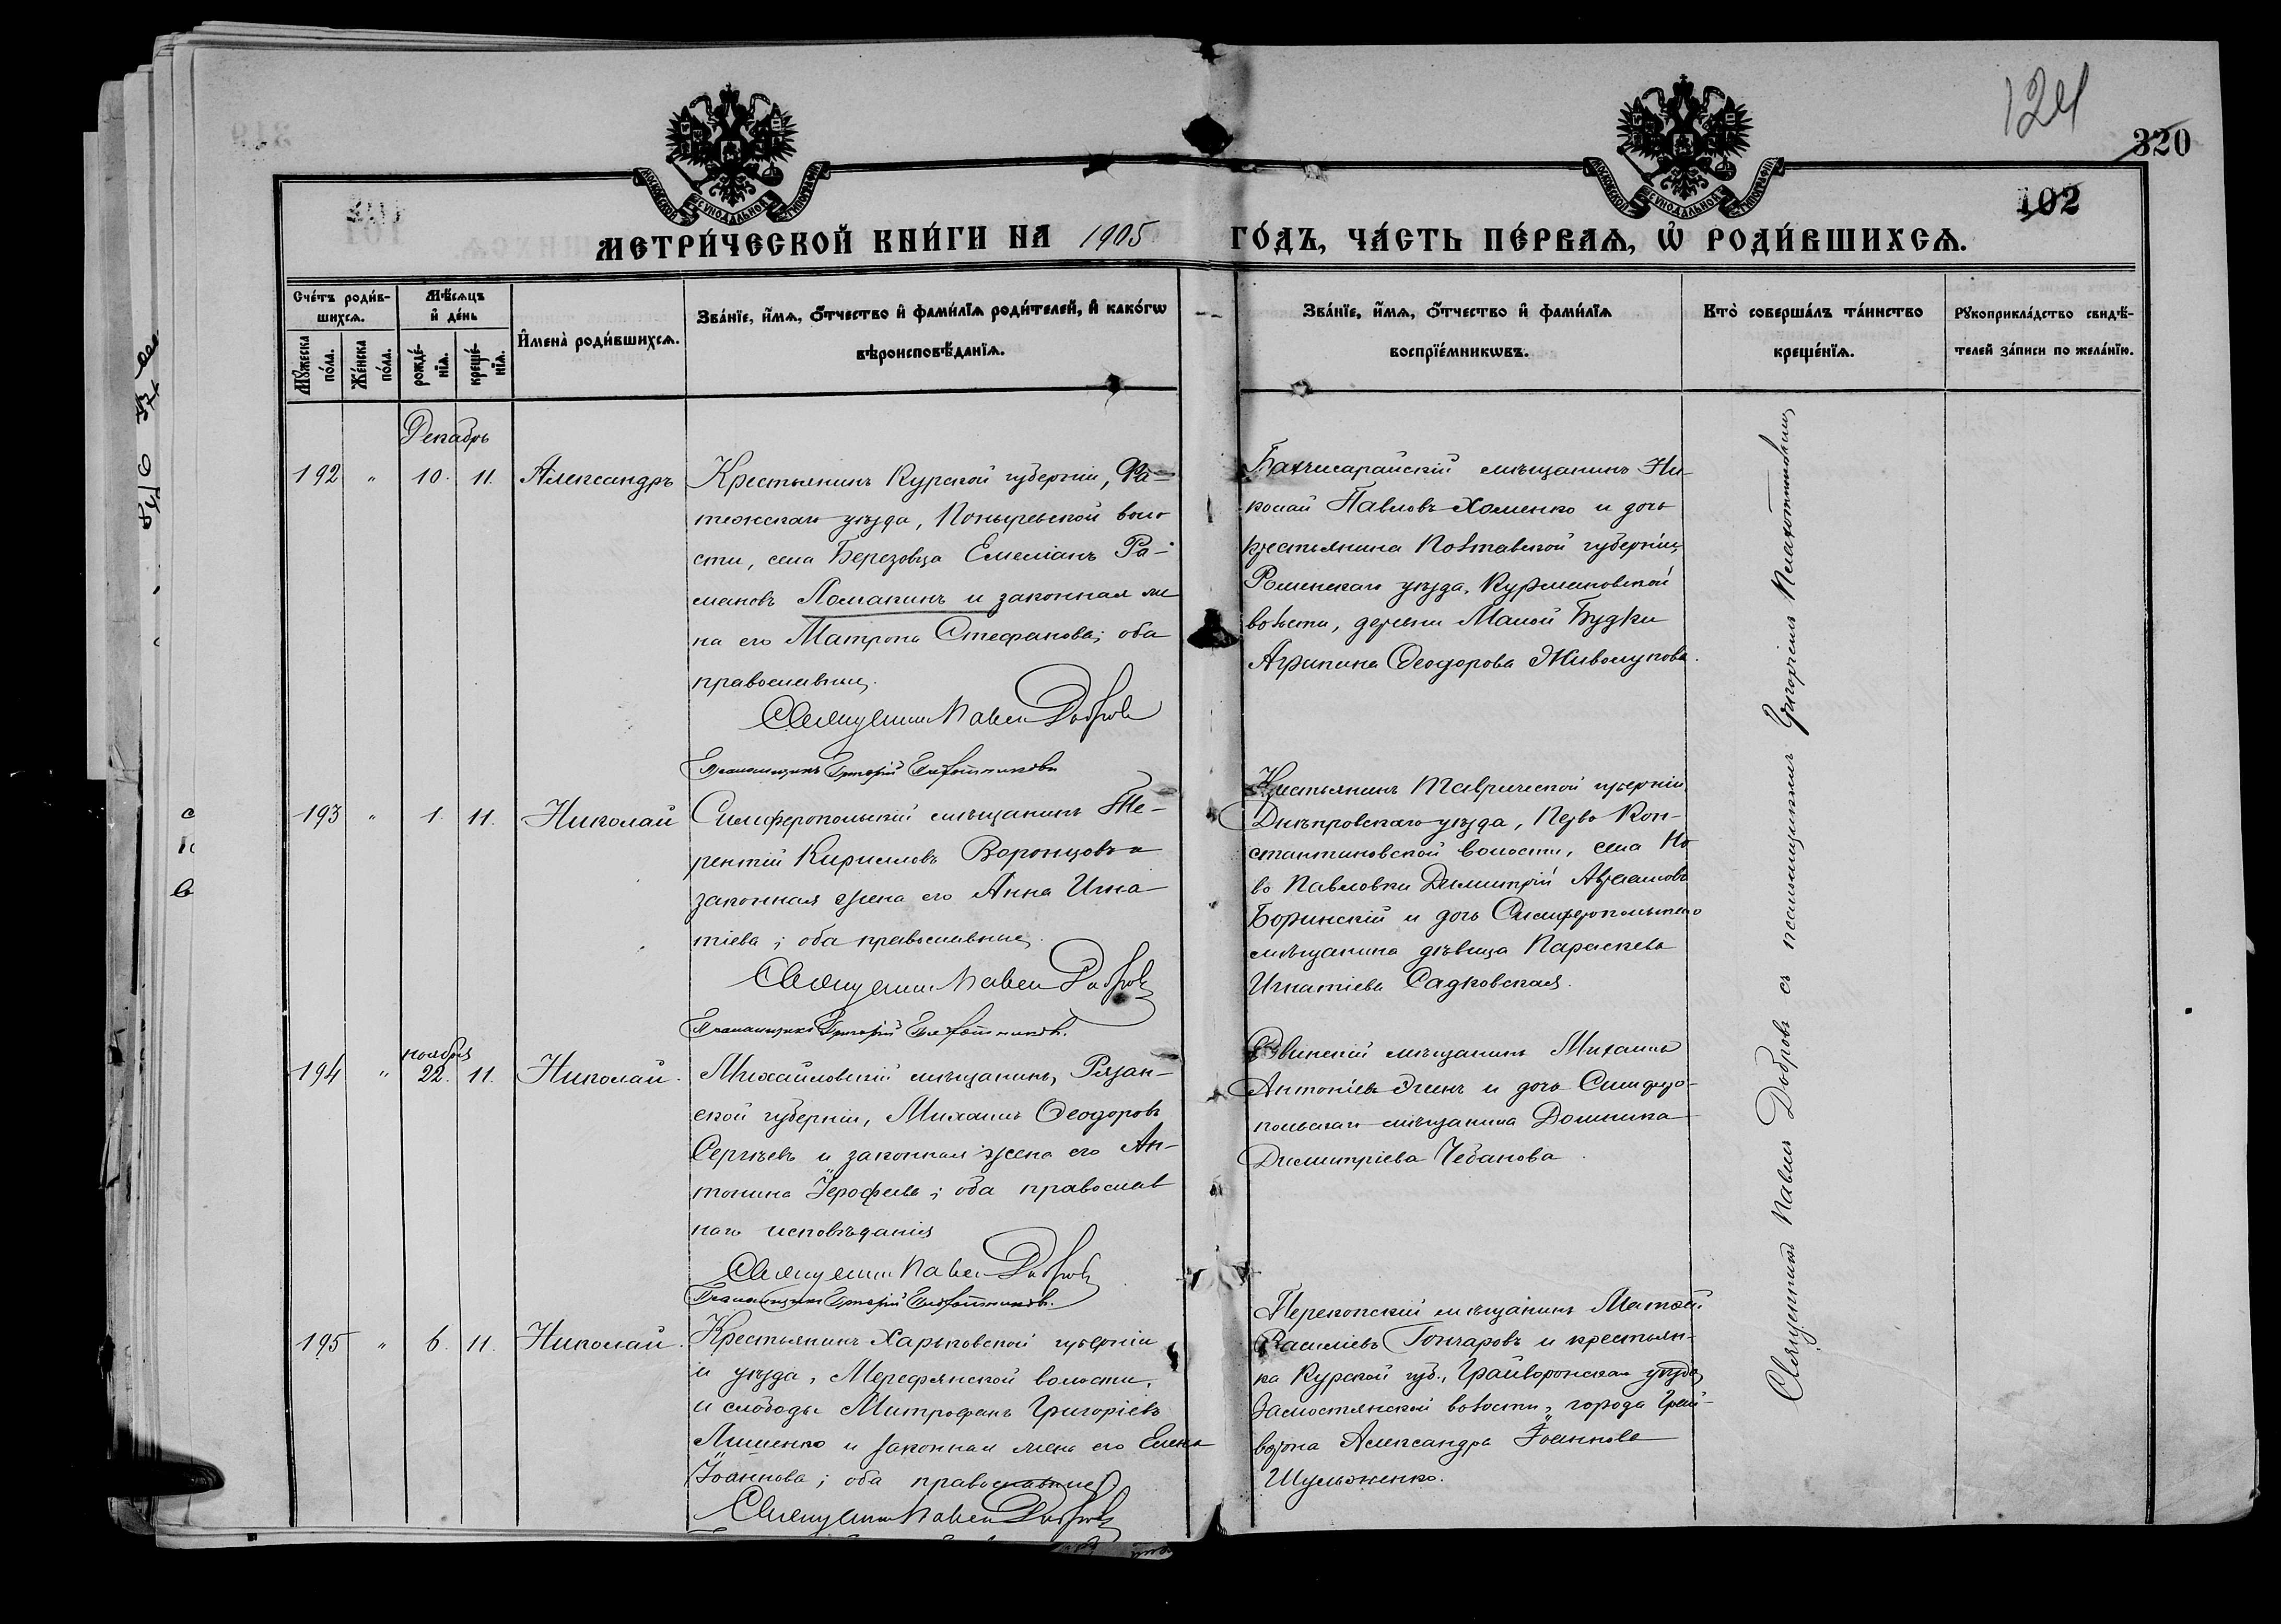 124
320
102
МЕТРИ́ЧЕСКОЙ КНИ́ГИ НА 1905 ГО́ДЪ, ЧА́СТЬ ПЕ́РВАѦ, Ѡ҆ РОДИ́ВШИХСѦ.
Сче́тъ роди́в-
шихсѧ.
Мꙋ́жеска по́ла.
Же́нска по́ла.
Мѣ́сѧцъ
и҆ де́нь
рожде́-
нїѧ.
креще́-
нїѧ.
И҆мена̀ роди́вшихсѧ.
Зва́нїе, и҆́мѧ, ѻ҆́тчество и҆ фами́лїѧ роди́телей, и҆ како́гѡ
вѣроисповѣ́данїѧ.
Зва́нїе, и҆́мѧ, ѻ҆́тчество и҆ фами́лїѧ
воспрїе́мникѡвъ.
Кто̀ соверша́лъ та́инство
креще́нїѧ.
Рꙋкоприкла́дство свидѣ́-
телей за́писи по жела́нїю.
Декабрь
192 " 10. 11. Александръ
Крестьянинъ Курской губерніи, Фа-
тежскаго уѣзда, Поныревской воло
сти, села Березовца Емеліанъ Ра-
мановъ Ломакинъ и законная же
на его Матрона Стефанова; оба
православные.
Священникъ Павелъ Добровъ
Псаломщикъ Григорій
Бахчисарайскій мѣщанинъ Ни-
колай Павловъ Хоменко и дочь
крестьянина Полтавской губерніи,
Роменскаго уѣзда, Курмановской
волости, деревни Малой Будки
Агрипина Ѳеодорова Живолупова.
193 " 1. 11. Николай
Симферопольскій мѣщанинъ Те-
рентій Кирилловъ Воронцовъ и
законная жена его Анна Игна-
тіева; оба православные.
Священникъ Павелъ Добровъ
Псаломщикъ Григорій
Крестьянинъ Таврической губерніи
Днѣпровскаго уѣзда, Перво Кон-
стантиновской волости, села Но
во Павловки Димитрій Авраамовъ
Боринскій и дочь Симферопольскаго
мѣщанина дѣвица Параскева
Игнатіева Садковская.
ноября
194 " 22. 11. Николай.
Михайловскій мѣщанинъ, Рязан-
ской губерніи, Михаилъ Ѳеодоровъ
Сергѣевъ и законная жена его Ан-
тонина Іерофеева; оба православ
наго исповѣданія
Священникъ Павелъ Добровъ
Псаломщикъ Григорій
Двинскій мѣщанинъ Михаилъ
Антоніевъ и дочь Симферо-
польскаго мѣщанина Домника
Димитріева Чебанова.
195 " 6. 11. Николай.
Крестьянинъ Харьковской губерніи
и уѣзда, Мерефянской волости,
и слободы Митрофанъ Григоріевъ
Лишенко и законная жена его Елена
Іоаннова; оба православные
Священникъ Павелъ Добровъ
Перекопскій мѣщанинъ Матѳей
Василіевъ Гончаровъ и крестьян-
ка Курской губ., Грайворонскаго уѣзда,
Замостянской волости, города Грай-
ворона Александра Іоаннова
Шульженко.
Священникъ Павелъ Добровъ съ псаломщикомъ Григоріемъ